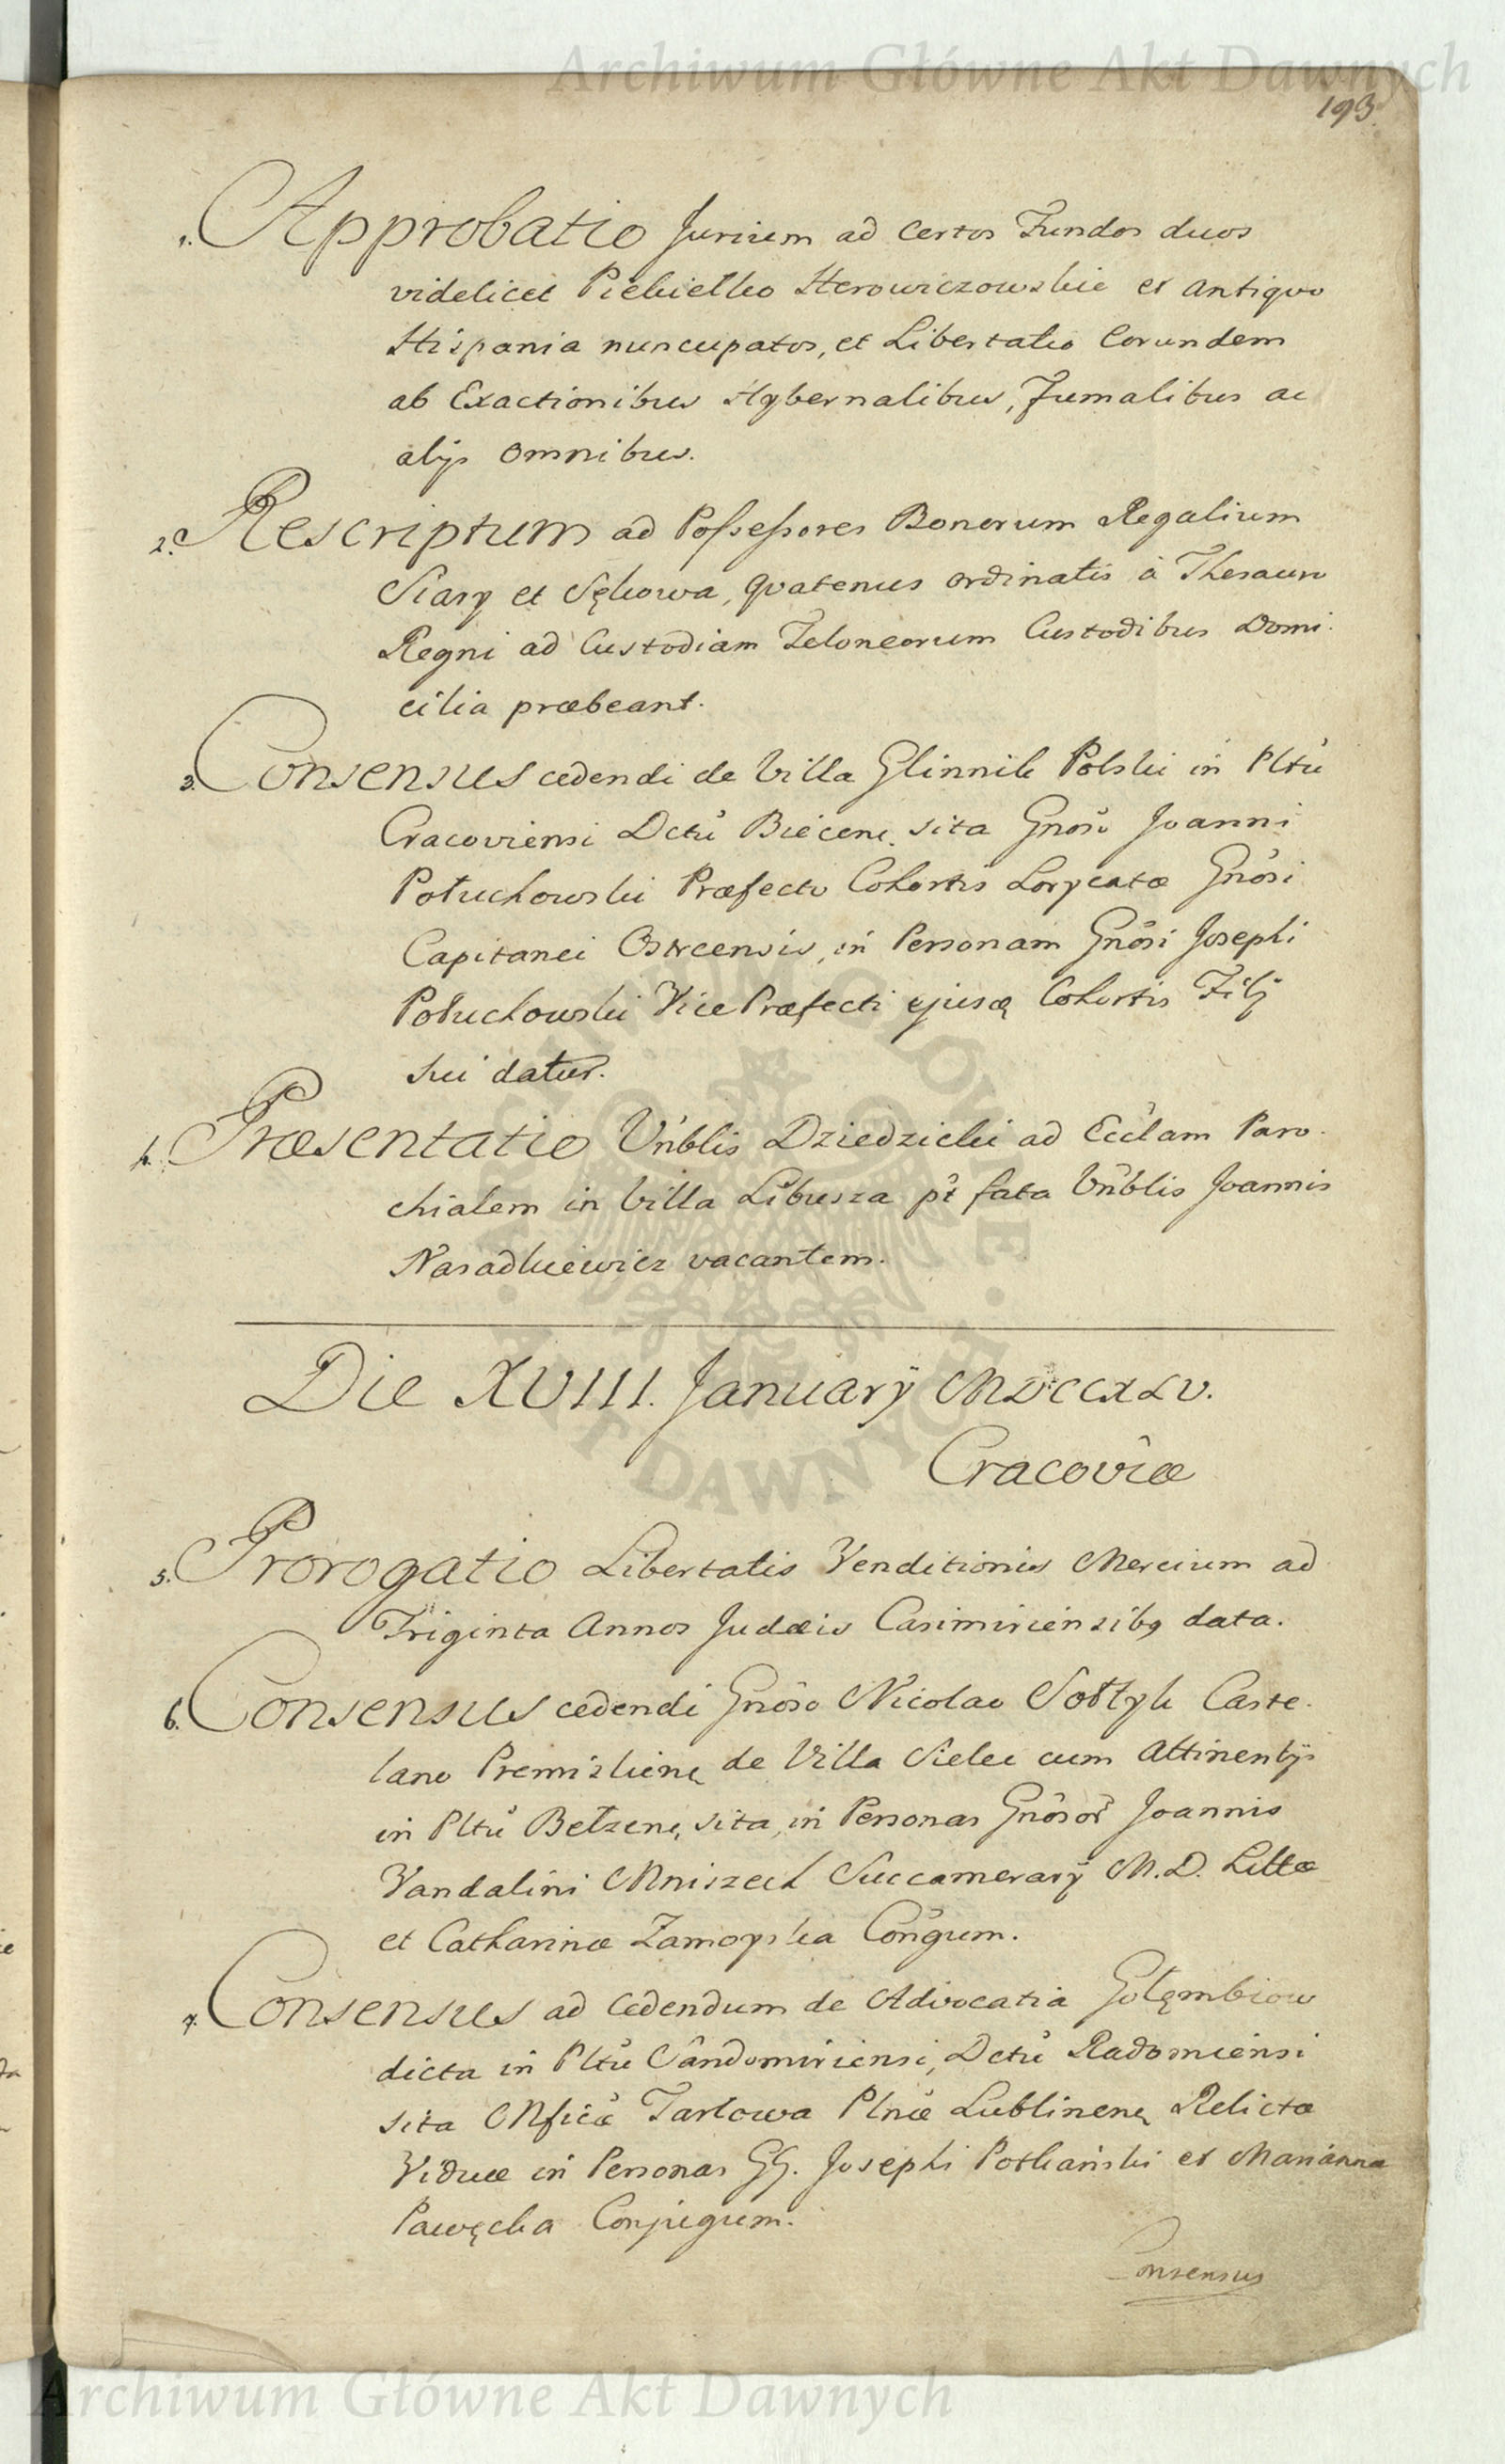 Archiwum Główne Akt Dawnych
193.
1. Approbatio Jurium ad certos Fundos duos
videlicet Piekiełko Herowiczowskie et antiquo
Hispania nuncupatos, et Libertatio Eorundem
ab Exactionibus Hybernalibus, Fumalibus ac
alijs omnibus.
2. Rescriptum ad Possessores Bonorum Regalium
Siary et Sękowa, qvatenus ordinatis à Thesauro
Regni ad Custodiam Teloneorum Custodibus Domi-
cilia præbeant.
3. Consensus cedendi de Villa Glinnik Polski in Pltũ
Cracoviensi Dctũ Biecenȩ sita Gnõso Joanni
Połuchowski Præfecto Cohortis Lorycatæ Gnõsi
Capitanei Ostrcensis, in Personam Gnõsi Josephi
Połuchowski Vice Præfecti ejusȩ Cohortis Filij
sui datur.
4. Præsentatio Vñblis Dziedzicki ad Eccłam Paro-
chialem in Villa Libusza pt fata Vñblis Joannis
Nasadkiewicz vacantem.
Die XVIII. Januarÿ MDCCXLV.
Cracoviæ
5. Prorogatio Libertatis Venditionis Mercium ad
Triginta Annos Judæis Casimiriensibꝯ data.
6. Consensus cedendi Gnõso Nicolao Sołtyk Caste-
lano Premislienȩ de Villa Sielec cum Attinentijs
in Pltũ Bełzenȩ sita, in Personas Gnõsor̃ Joannis
Vandalini Mniszech Succamerarÿ M. D. Littæ
et Catharinæ Zamoyska Cõngum.
7. Consensus ad cedendum de Advocatia Gołęmbiow
dicta in Pltũ Sandomiriensi, Dctũ Radomiensi
sita Mficæ Tarłowa Plnæ Lublinenȩ Relictæ
Viduæ in Personas GG. Josephi Potkański et Marianna
Pawęcka Conjugum.
Consensus
Archiwum Główne Akt Dawnych